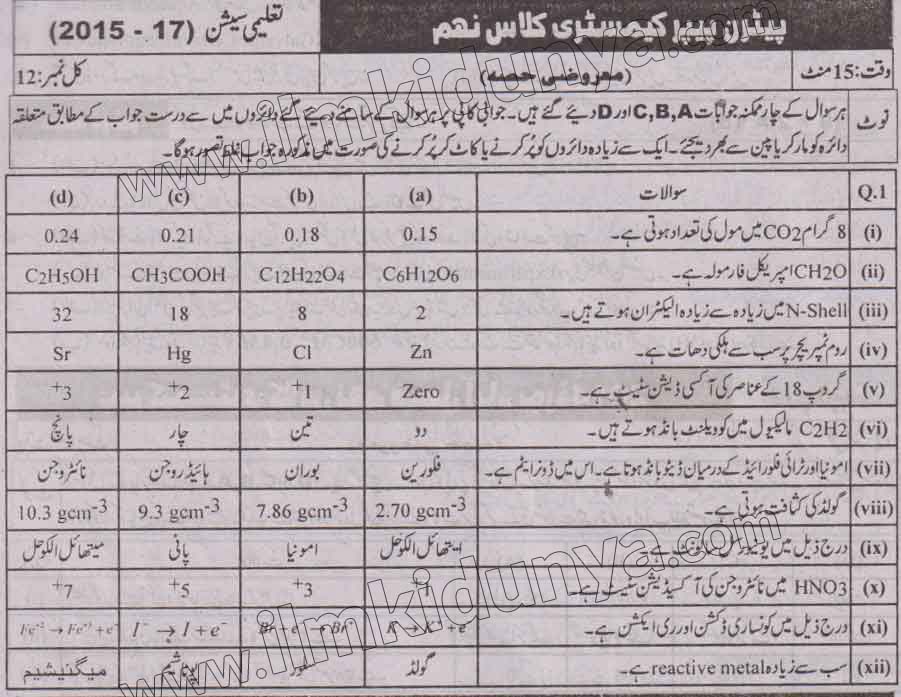 پیٹرن پیپر کیمسٹری کلاس نہم تعلیمی سیشن (17 - 2015)
وقت: 15 منٹ (معروضی حصہ) کل نمبر: 12
نوٹ ہر سوال کے چار ممکنہ جوابات C,B,A اور D دیئے گئے ہیں۔ جوابی کاپی پر ہر سوال کے سامنے دیئے گئے دائروں میں سے درست جواب کے مطابق متعلقہ
دائرہ کو مارکر یا پین سے بھر دیجئے۔ ایک سے زیادہ دائروں کو پُر کرنے یا کاٹ کر پُر کرنے کی صورت میں مذکورہ جواب غلط تصور ہوگا۔
Q.1 سوالات (a) (b) (c) (d)
(i) 8 گرام CO2 میں مول کی تعداد ہوتی ہے۔ 0.15 0.18 0.21 0.24
(ii) CH2O امپیریکل فارمولہ ہے۔ C6H12O6 C12H22O4 CH3COOH C2H5OH
(iii) N-Shell میں زیادہ سے زیادہ الیکٹران ہوتے ہیں۔ 2 8 18 32
(iv) روم ٹمپریچر پر سب سے ہلکی دھات ہے۔ Zn Cl Hg Sr
(v) گروپ 18 کے عناصر کی آکسی ڈیشن سٹیٹ ہے۔ Zero +1 +2 +3
(vi) C2H2 مالیکیول میں کوویلنٹ بانڈ ہوتے ہیں۔ دو تین چار پانچ
(vii) امونیا اور ٹرائی فلورائیڈ کے درمیان ڈیٹو بانڈ ہوتا ہے۔ اس میں ڈونر ایٹم ہے۔ فلورین بوران ہائیڈروجن نائٹروجن
(viii) گولڈ کی کثافت ہوتی ہے۔ 2.70 gcm-3 7.86 gcm-3 9.3 gcm-3 10.3 gcm-3
(ix) درج ذیل میں یونیورسل سالونٹ ہے۔ ایتھائل الکوحل امونیا پانی میتھائل الکوحل
(x) HNO3 میں نائٹروجن کی آکسیڈیشن سٹیٹ ہے۔ +1 +3 +5 +7
(xi) درج ذیل میں کونسا ری ڈکشن اور ری ایکشن ہے۔ K → K+ + e Br + e- → Br- I- → I + e- Fe+2 → Fe+3 + e-
(xii) سب سے زیادہ reactive metal ہے۔ گولڈ پوٹاشیم میگنیشیم
www.ilmkidunya.com
www.ilmkidunya.com